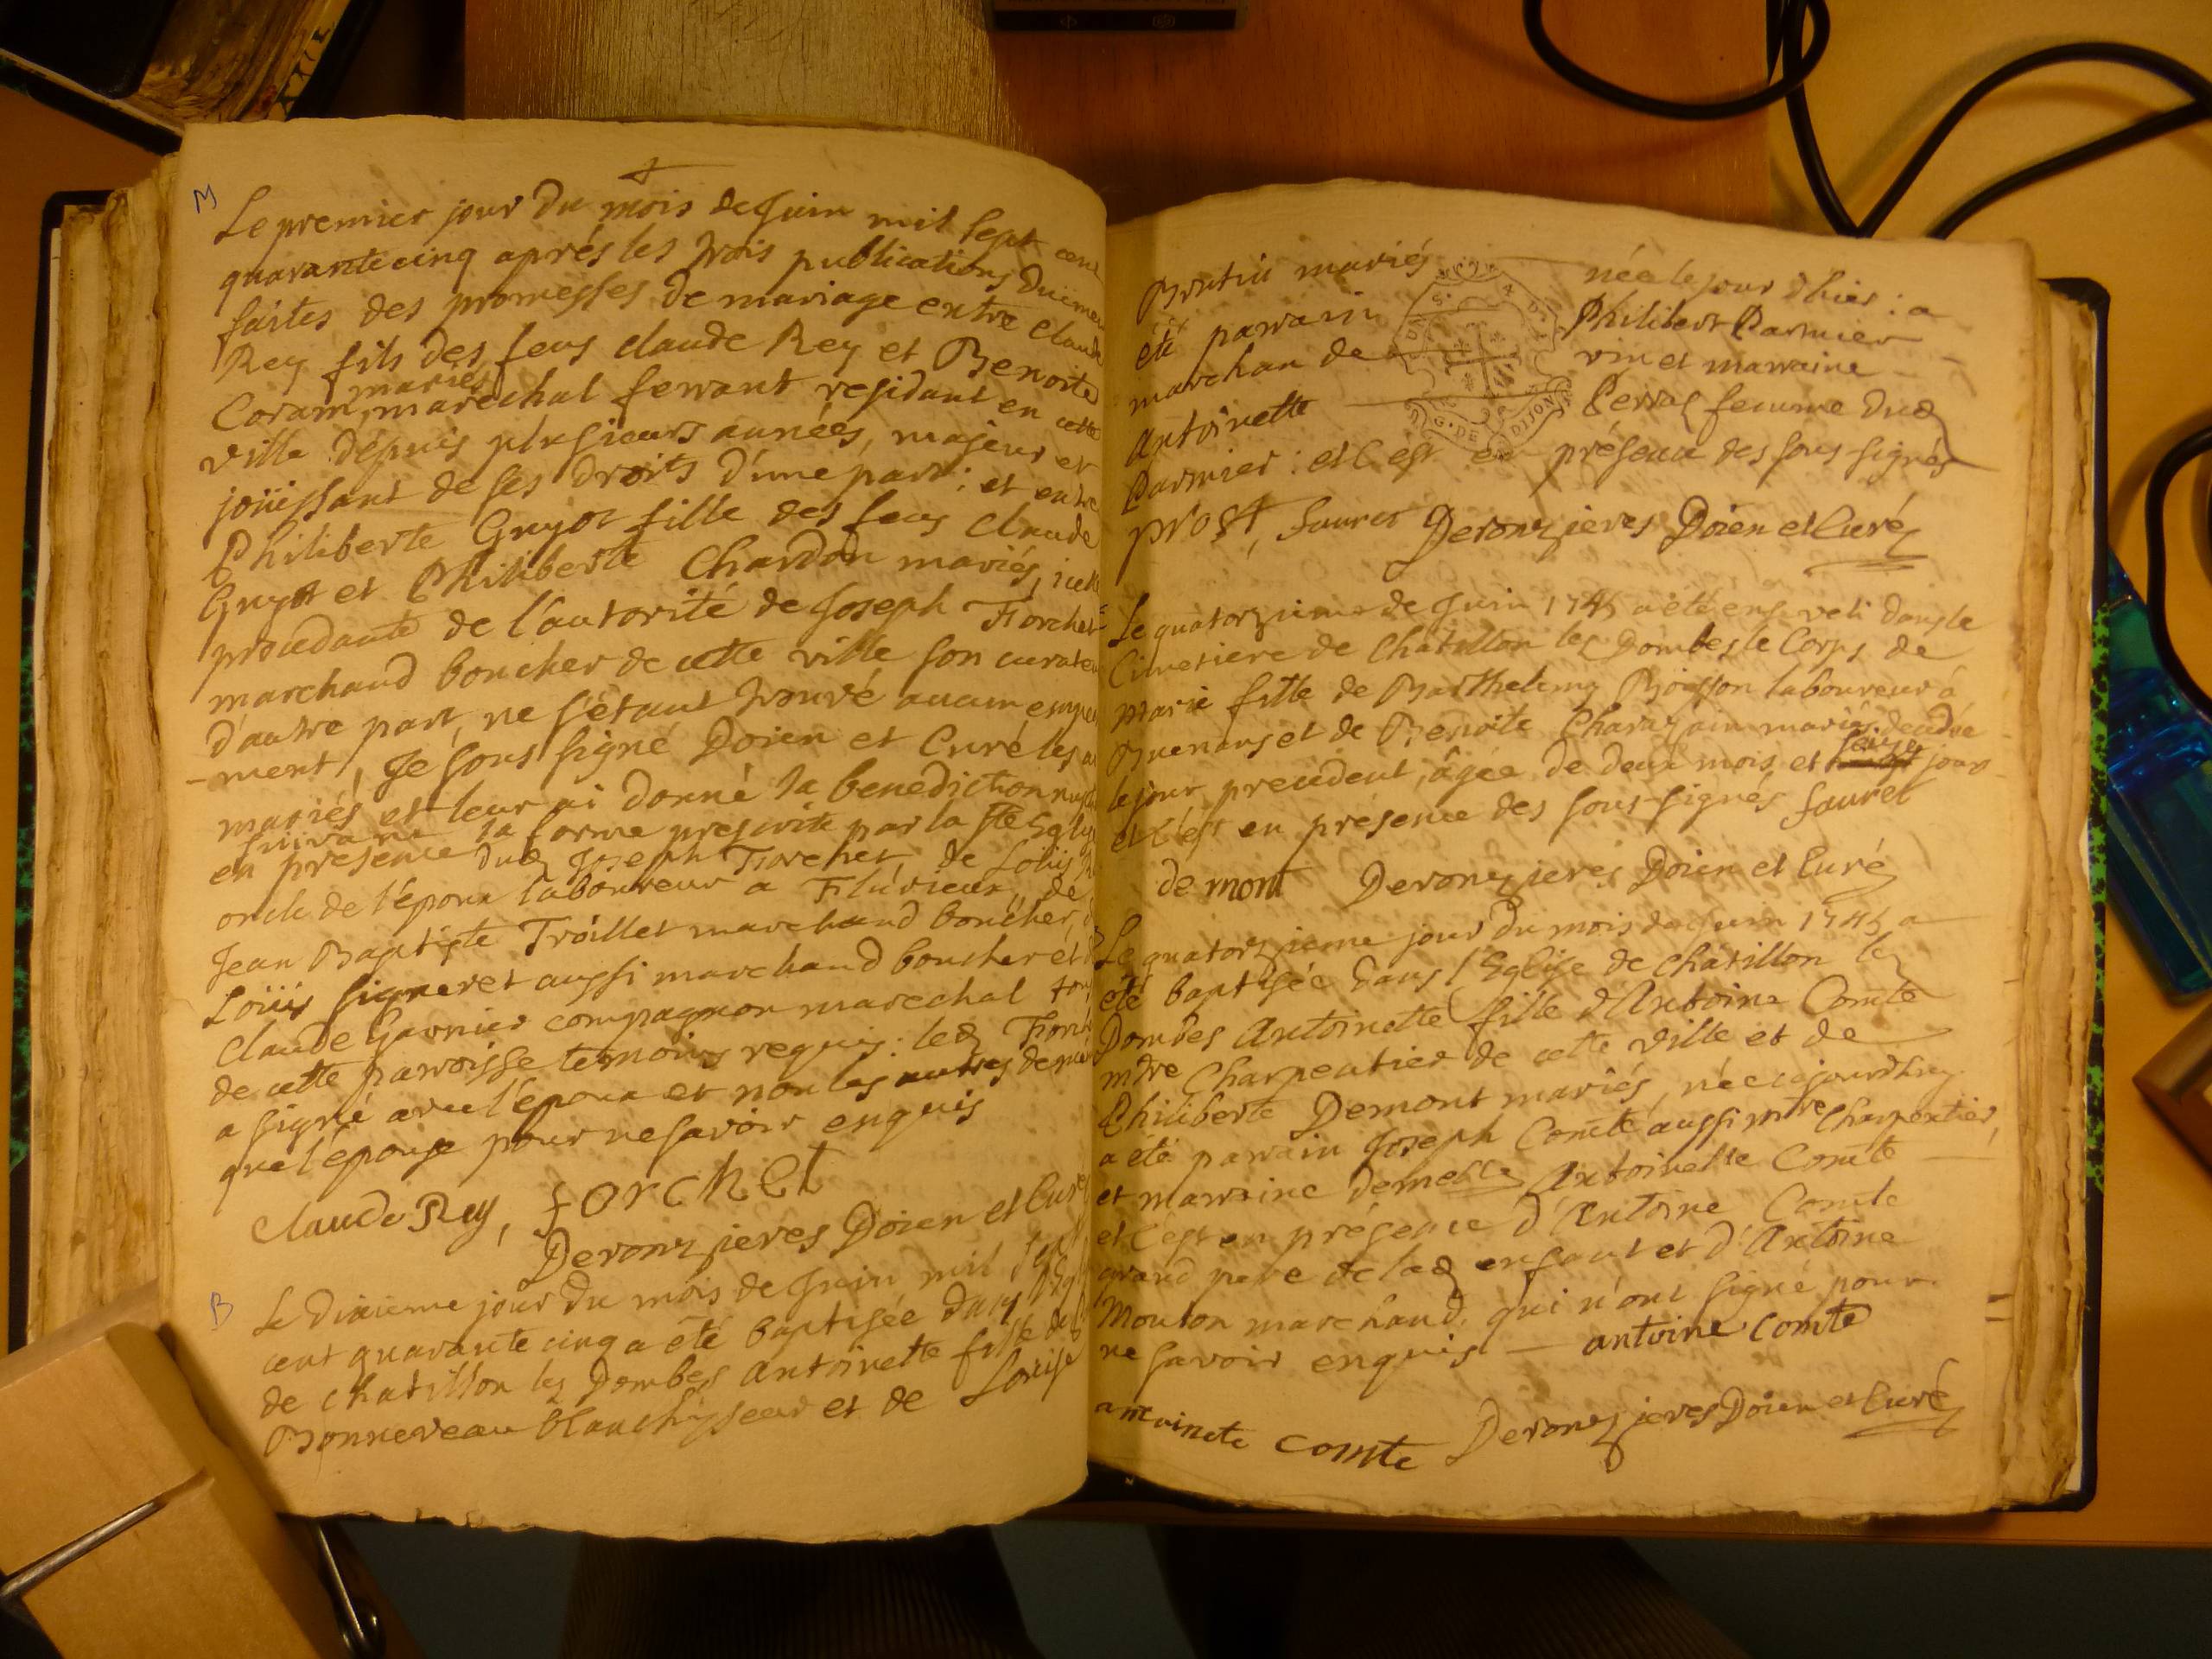 M
Le premier jour du mois de Juin mil sept cent
quarante cinq aprés les trois publications duëmen
faites des promesses de mariage entre Claude
Rey fils des feus claude Rey et Benoite
Coram mariés, maréchal ferrant residant en cette
ville depuis plusieurs années, majeur et
joüissant de ses droits d'une part; et entre
Philiberte Guyot fille des feus Claude
Guyot et Philiberte Chardon mariés, icelle
procedante de l'autorité de Joseph Forchet
marchand boucher de cette ville son curateu
d'autre part, ne s'étant trouvé aucun empe
-ment, Je sous signé Doien et Curé les ai
mariés et leur ai donné la benediction nupt
suivant la forme prescrite par la Ste Eglis
en presence dud Joseph Forchet, de Loüis
oncle de l'epoux laboureur a Flurieux, de
Jean Baptiste Troillet marchand boucher,
Loüis signeret aussi marchand boucher et
Claude Garnier compagnon marechal tous
de cette paroisse temoins requis: led Forch
a signé avec l'epoux et non les autres de mê
que l'epouse pour ne savoir enquis
Claude Rey, forchet
Deronzieres Doien et Curé
B
Le dixieme jour du mois de Juin mil sept
cent quarante cinq a été baptisée dans l'Egl
de chatillon les Dombes Antoinette fille de
Bonneveau blanchisseur et de Loüise
mariés née le jour d'hier: a
été parrain Philibert Parnier
marchan de vin et marraine
Antoinette Perras femme dud
Parnier: et c'est en présence des sous signés
prost, Sauret Deronzieres Doien et Curé
G. DE DIJON
Le quatorzieme de Juin 1745 a été enseveli dans le
Cimetiere de Châtillon les Dombes le Corps de
Marie fille de Barthelemy Boisson laboureur à
Buenans et de Benoite mariés, decedée
le jour precedent, âgée de deux mois et seize jours
et c'est en présence des sous-signés Sauret
demont Deronzieres Doien et Curé
Le quatorzieme jour du mois de Juin 1745 a
été baptisée dans l'Eglise de Châtillon les
Dombes Antoinette fille d'Antoine Comte
mtre Charpentier de cette ville et de
Philiberte Demont mariés, née cejourdhuy
a été parrain Joseph Comte aussi mtre Charpentier,
et marraine demelle Antoinette Comte
et c'est en présence d'Antoine Comte
grand pere de lad enfant et d'Antoine
Mouton marchand, qui n'ont signé pour
ne savoir enquis — antoine comte
comte Deronzieres Doien et Curé